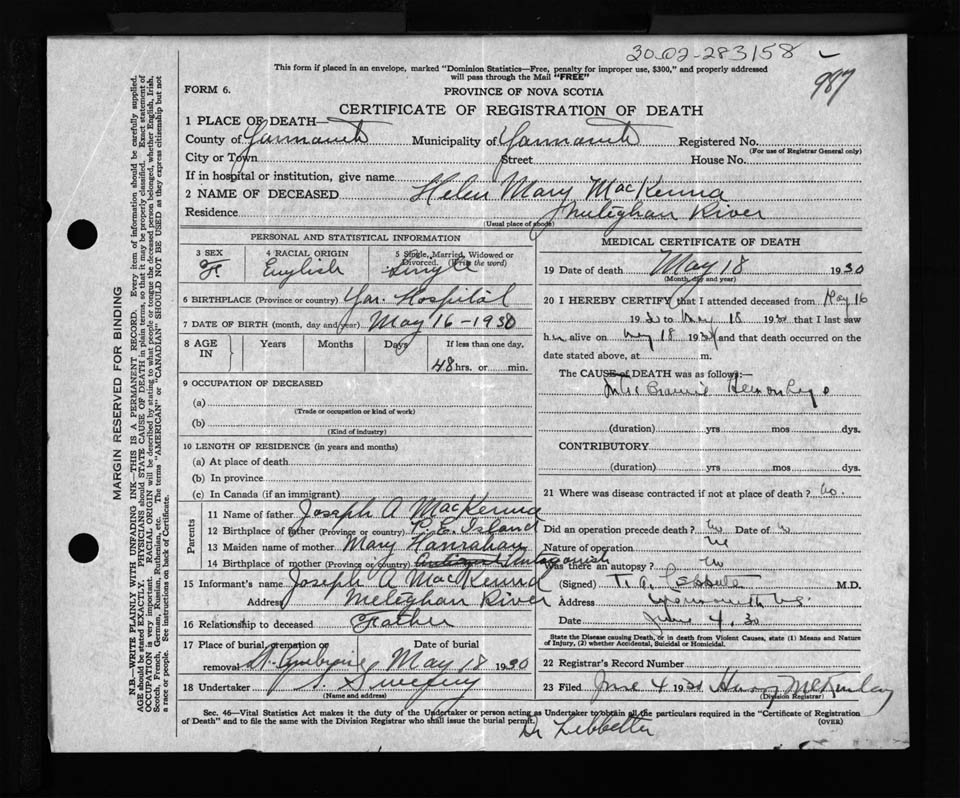 30-02-283158
987
This form if placed in an envelope, marked "Dominion Statistics—Free, penalty for improper use, $300," and properly addressed
will pass through the Mail "FREE"
FORM 6.
PROVINCE OF NOVA SCOTIA
CERTIFICATE OF REGISTRATION OF DEATH
1 PLACE OF DEATH—
County of Yarmouth Municipality of Yarmouth Registered No.
(For use of Registrar General only)
City or Town Street House No.
If in hospital or institution, give name
2 NAME OF DECEASED Helen Mary MacKenna
Residence Meteghan River
(Usual place of abode)
PERSONAL AND STATISTICAL INFORMATION
3 SEX 4 RACIAL ORIGIN 5 Single, Married, Widowed or
Divorced. (Write the word)
F English Single
6 BIRTHPLACE (Province or country) Yar. Hospital
7 DATE OF BIRTH (month, day and year) May 16-1930
8 AGE IN Years Months Days If less than one day,
48 hrs. or min.
9 OCCUPATION OF DECEASED
(a)
(Trade or occupation or kind of work)
(b)
(Kind of industry)
10 LENGTH OF RESIDENCE (in years and months)
(a) At place of death
(b) In province
(c) In Canada (if an immigrant)
Parents
11 Name of father Joseph A MacKenna
12 Birthplace of father (Province or country) P.E. Island
13 Maiden name of mother Mary Hanrahan
14 Birthplace of mother (Province or country) Antigonish
15 Informant's name Joseph A MacKenna
Address Meteghan River
16 Relationship to deceased Father
17 Place of burial, cremation or Date of burial
removal St. May 18 1930
18 Undertaker S. Sweeny
(Name and address)
MEDICAL CERTIFICATE OF DEATH
19 Date of death May 18 1930
(Month, day and year)
20 I HEREBY CERTIFY that I attended deceased from May 16
193 to May 18 193 that I last saw
her alive on May 18 193 and that death occurred on the
date stated above, at m.
The CAUSE of DEATH was as follows:—
Hemorrhage
(duration) yrs mos dys.
CONTRIBUTORY
(duration) yrs mos dys.
21 Where was disease contracted if not at place of death? No.
Did an operation precede death? No Date of
Nature of operation
Was there an autopsy? No
(Signed) T. A. Lebbetter M.D.
Address Yarmouth N.S.
Date June 4. 30
State the Disease causing Death, or in death from Violent Causes, state (1) Means and Nature
of Injury, (2) whether Accidental, Suicidal or Homicidal.
22 Registrar's Record Number
23 Filed June 4 193 McKinlay
(Division Registrar)
Sec. 46—Vital Statistics Act makes it the duty of the Undertaker or person acting as Undertaker to obtain all the particulars required in the "Certificate of Registration
of Death" and to file the same with the Division Registrar who shall issue the burial permit.
(OVER)
Dr Lebbetter
MARGIN RESERVED FOR BINDING
N.B.—WRITE PLAINLY WITH UNFADING INK—THIS IS A PERMANENT RECORD. Every item of information should be carefully supplied.
AGE should be stated EXACTLY. PHYSICIANS should STATE CAUSE OF DEATH in plain terms, so that it may be properly classified. Exact statement of
OCCUPATION is very important. RACIAL ORIGIN will be described by stating to what people or tongue the deceased person belonged, whether English, Irish,
Scotch, French, German, Russian, Ruthenian, etc. The terms "AMERICAN" or "CANADIAN" SHOULD NOT BE USED as they express citizenship but not
a race or people. See instructions on back of Certificate.